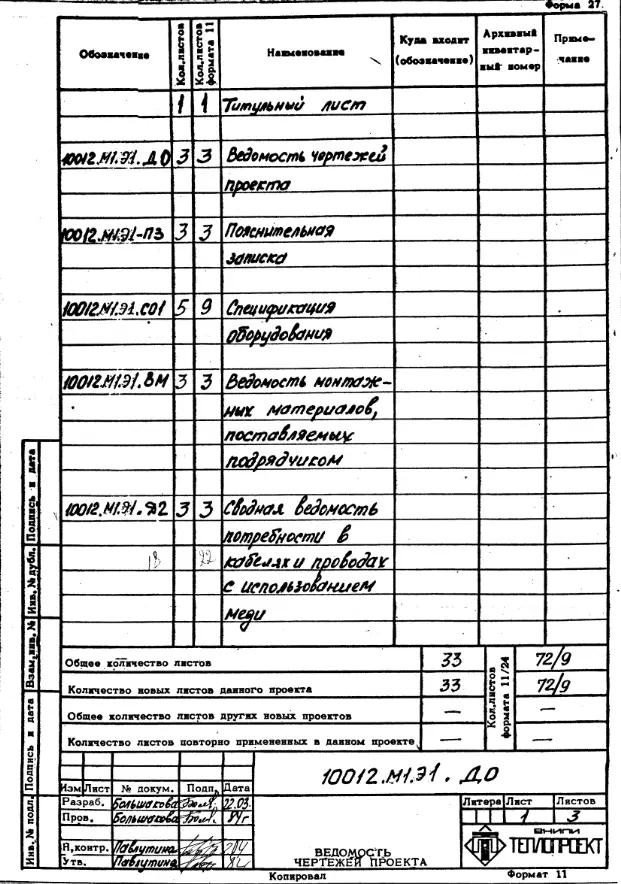 Форма 27.
Обозначение Кол.листов Кол.листов формата 11 Наименование Куда входит (обозначение) Архивный инвентар-ный номер Приме-чание
1 1 Титульный лист
10012.М1.Э1.ДО 3 3 Ведомость чертежей
проекта
10012.М1.Э1-ПЗ 3 3 Пояснительная
записка
10012.М1.Э1.СО1 5 9 Спецификация
оборудования
10012.М1.Э1.ВМ 3 3 Ведомость монтаж-
ных материалов,
поставляемых
подрядчиком
10012.М1.Э1.Э2 3 3 Сводная ведомость
потребности в
18 22 кабелях и проводах
с использованием
меди
Общее количество листов 33 Кол.листов формата 11/24 72/9
Количество новых листов данного проекта 33 72/9
Общее количество листов других новых проектов — —
Количество листов повторно примененных в данном проекте — —
Подпись и дата
Инв.№ дубл.
Взам.инв.№
Подпись и дата
Инв.№ подл.
10012.М1.Э1.ДО
Изм Лист № докум. Подп. Дата
Разраб. Большакова 22.03.
Пров. Большакова 84г
Н.контр. Павлутина
Утв. Павлутина
ВЕДОМОСТЬ
ЧЕРТЕЖЕЙ ПРОЕКТА
Литера Лист Листов
1 3
ВНИПИ
ТЕПЛОПРОЕКТ
Копировал Формат 11